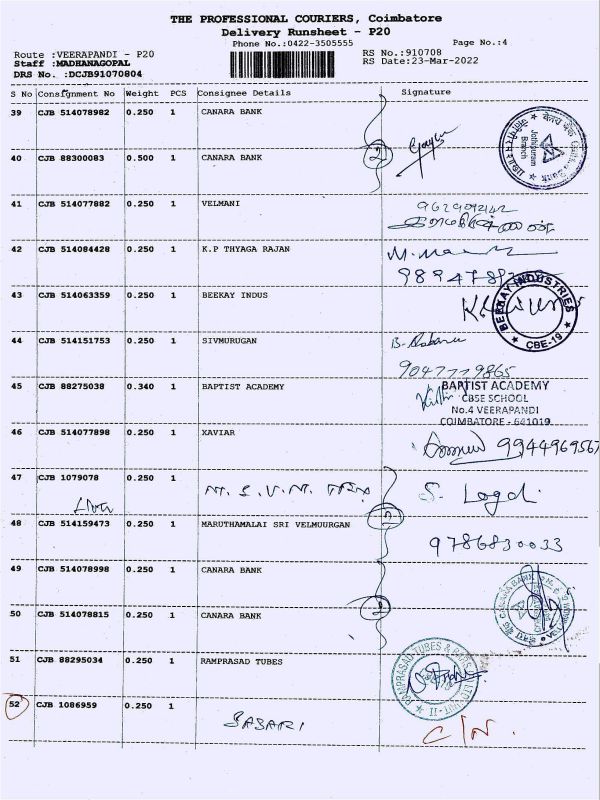 THE PROFESSIONAL COURIERS, Coimbatore
Delivery Runsheet - P20
Phone No.:0422-3505555 Page No.:4
Route :VEERAPANDI - P20 RS No.:910708
Staff :MADHANAGOPAL RS Date:23-Mar-2022
DRS No. :DCJB91070804
S No Consignment No Weight PCS Consignee Details Signature
39 CJB 514078982 0.250 1 CANARA BANK
Jothipuram
Branch
2
40 CJB 88300083 0.500 1 CANARA BANK
41 CJB 514077882 0.250 1 VELMANI
42 CJB 514084428 0.250 1 K.P THYAGA RAJAN
43 CJB 514063359 0.250 1 BEEKAY INDUS
BEEKAY INDUSTRIES
CBE-19
44 CJB 514151753 0.250 1 SIVMURUGAN
9047779865
45 CJB 88275038 0.340 1 BAPTIST ACADEMY
BAPTIST ACADEMY
CBSE SCHOOL
No.4 VEERAPANDI
COIMBATORE - 641019
46 CJB 514077898 0.250 1 XAVIAR
9944969567
47 CJB 1079078 0.250 1
S. Logd
2
48 CJB 514159473 0.250 1 MARUTHAMALAI SRI VELMUURGAN
9786830033
49 CJB 514078998 0.250 1 CANARA BANK
CANARA BANK
2
50 CJB 514078815 0.250 1 CANARA BANK
51 CJB 88295034 0.250 1 RAMPRASAD TUBES
52 CJB 1086959 0.250 1 SASARI C/N.